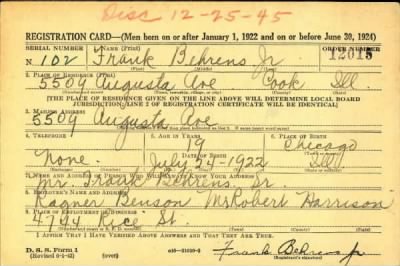 Disc 12-25-45
REGISTRATION CARD—(Men born on or after January 1, 1922 and on or before June 30, 1924)
SERIAL NUMBER 1. NAME (Print) ORDER NUMBER
N 102 Frank Behrens Jr. 12015
(First) (Middle) (Last)
2. PLACE OF RESIDENCE (Print)
5504 Augusta Ave Cook Ill.
(Number and street) (Town, township, village, or city) (County) (State)
[THE PLACE OF RESIDENCE GIVEN ON THE LINE ABOVE WILL DETERMINE LOCAL BOARD
JURISDICTION; LINE 2 OF REGISTRATION CERTIFICATE WILL BE IDENTICAL]
3. MAILING ADDRESS
5504 Augusta Ave
4. TELEPHONE 5. AGE IN YEARS 6. PLACE OF BIRTH
19 Chicago
DATE OF BIRTH
None July 24-1922 Ill
7. NAME AND ADDRESS OF PERSON WHO WILL ALWAYS KNOW YOUR ADDRESS
Mr. Frank Behrens, Sr.
8. EMPLOYER'S NAME AND ADDRESS
Ragner Benson Mr Robert Harrison
9. PLACE OF EMPLOYMENT OR BUSINESS
4744 Rice St.
I AFFIRM THAT I HAVE VERIFIED ABOVE ANSWERS AND THAT THEY ARE TRUE.
D. S. S. Form 1
(Revised 6-1-42) (over) Frank Behrens Jr